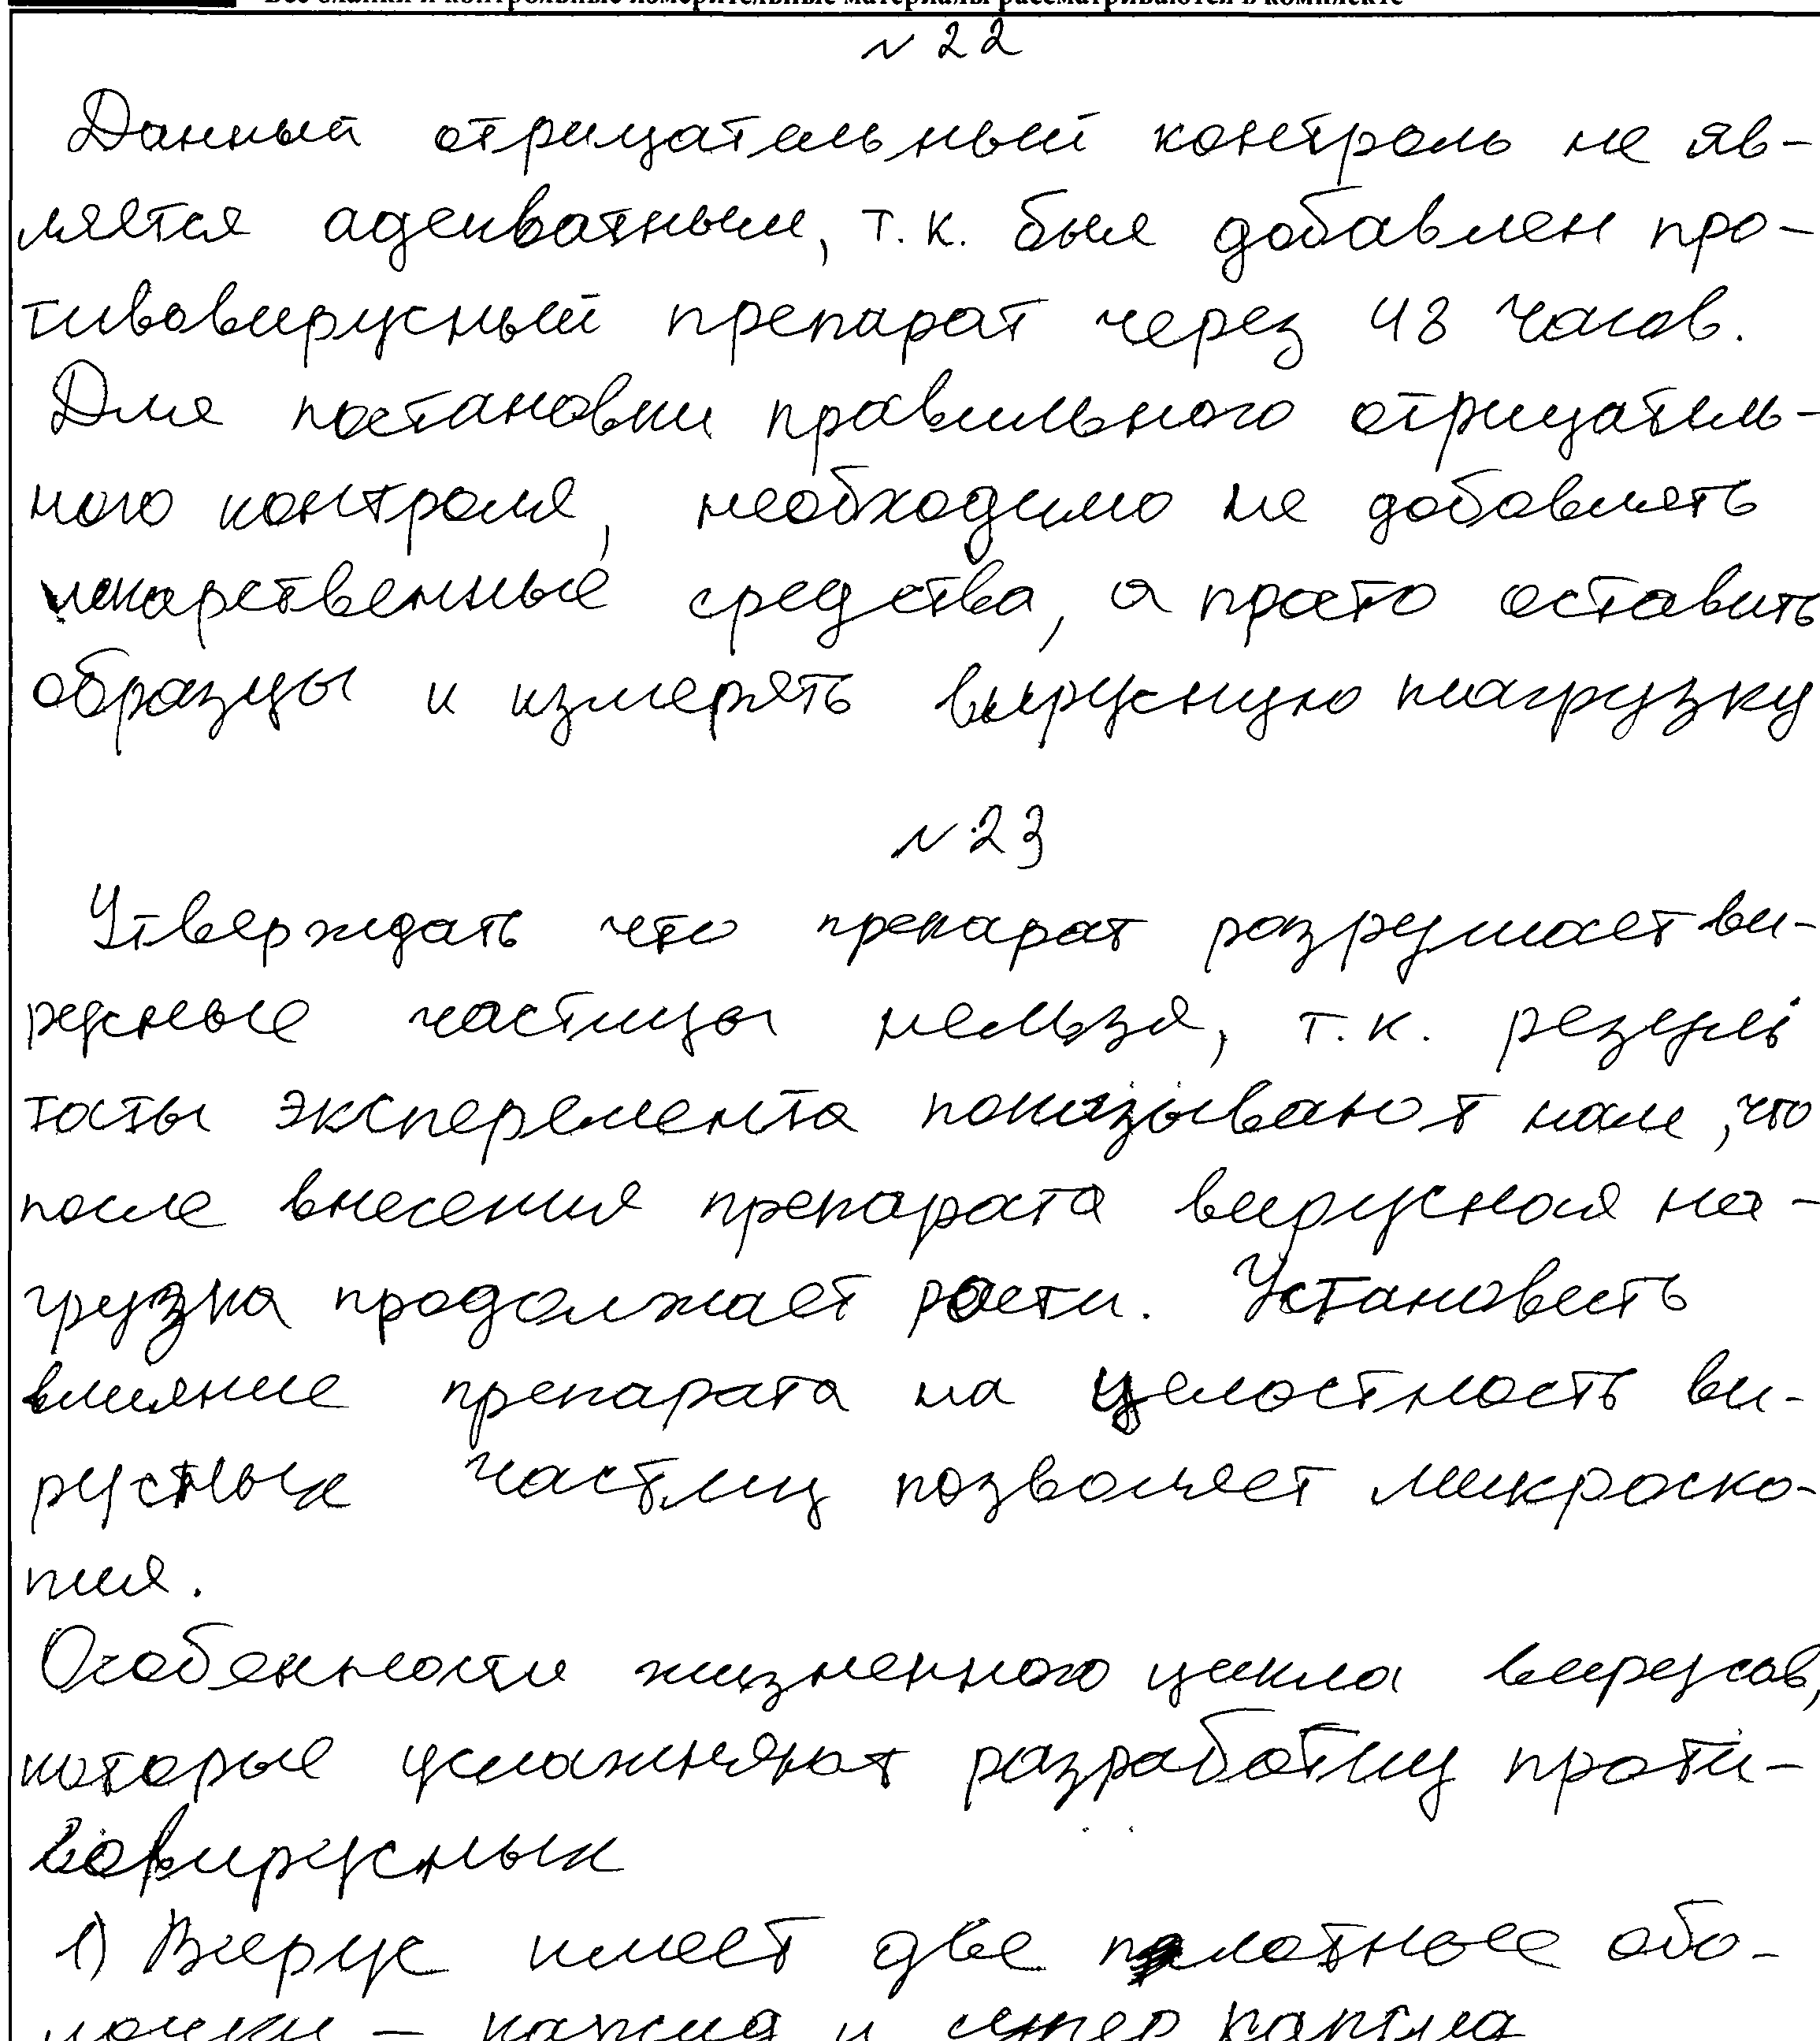 Все бланки и контрольные измерительные материалы рассматриваются в комплекте
№ 22
Данный отрицательный контроль не яв-
ляется адекватным, т.к. был добавлен про-
тивовирусный препарат через 48 часов.
Для постановки правильного отрицатель-
ного контроля, необходимо не добавлять
лекарственные средства, а просто оставить
образцы и измерять вирусную нагрузку
№ 23
Утверждать что препарат разрушает ви-
русные частицы нельзя, т.к. резуль
таты эксперемента показывают нам, что
после внесения препарата вирусная на-
грузка продолжает рости. Установить
влияние препарата на целостность ви-
русных частиц позволяет микроско-
пия.
Особенности жизненного цикла вирусов,
которые усложняют разработку проти-
вовирусных
1) Вирус имеет две плотные обо-
лочки – капсид и супер капсид